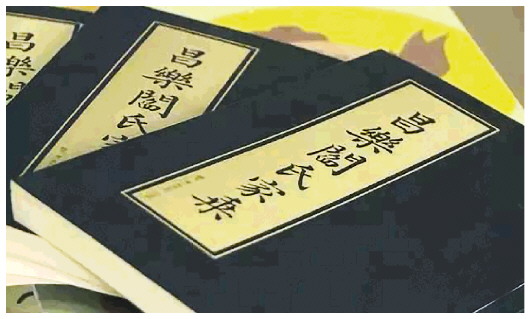 昌樂
昌樂閻氏家
昌樂閻氏家乘